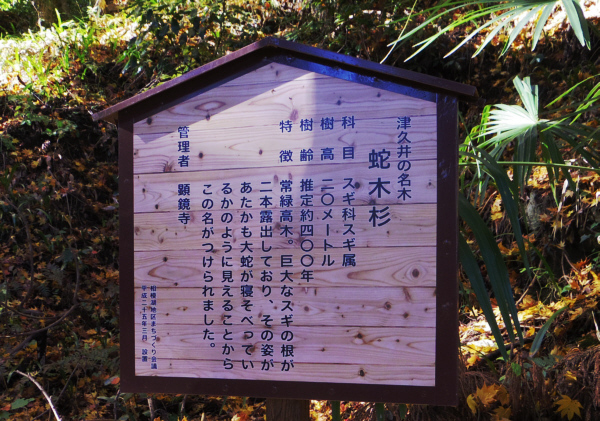 津久井の名木
蛇木杉
科目 スギ科スギ属
樹高 二〇メートル
樹齢 推定約四〇〇年
特徴 常緑高木。巨大なスギの根が
二本露出しており、その姿が
あたかも大蛇が寝そべってい
るかのように見えることから
この名がつけられました。
管理者 顕鏡寺
相模湖地区まちづくり会議
平成二十五年三月 設置